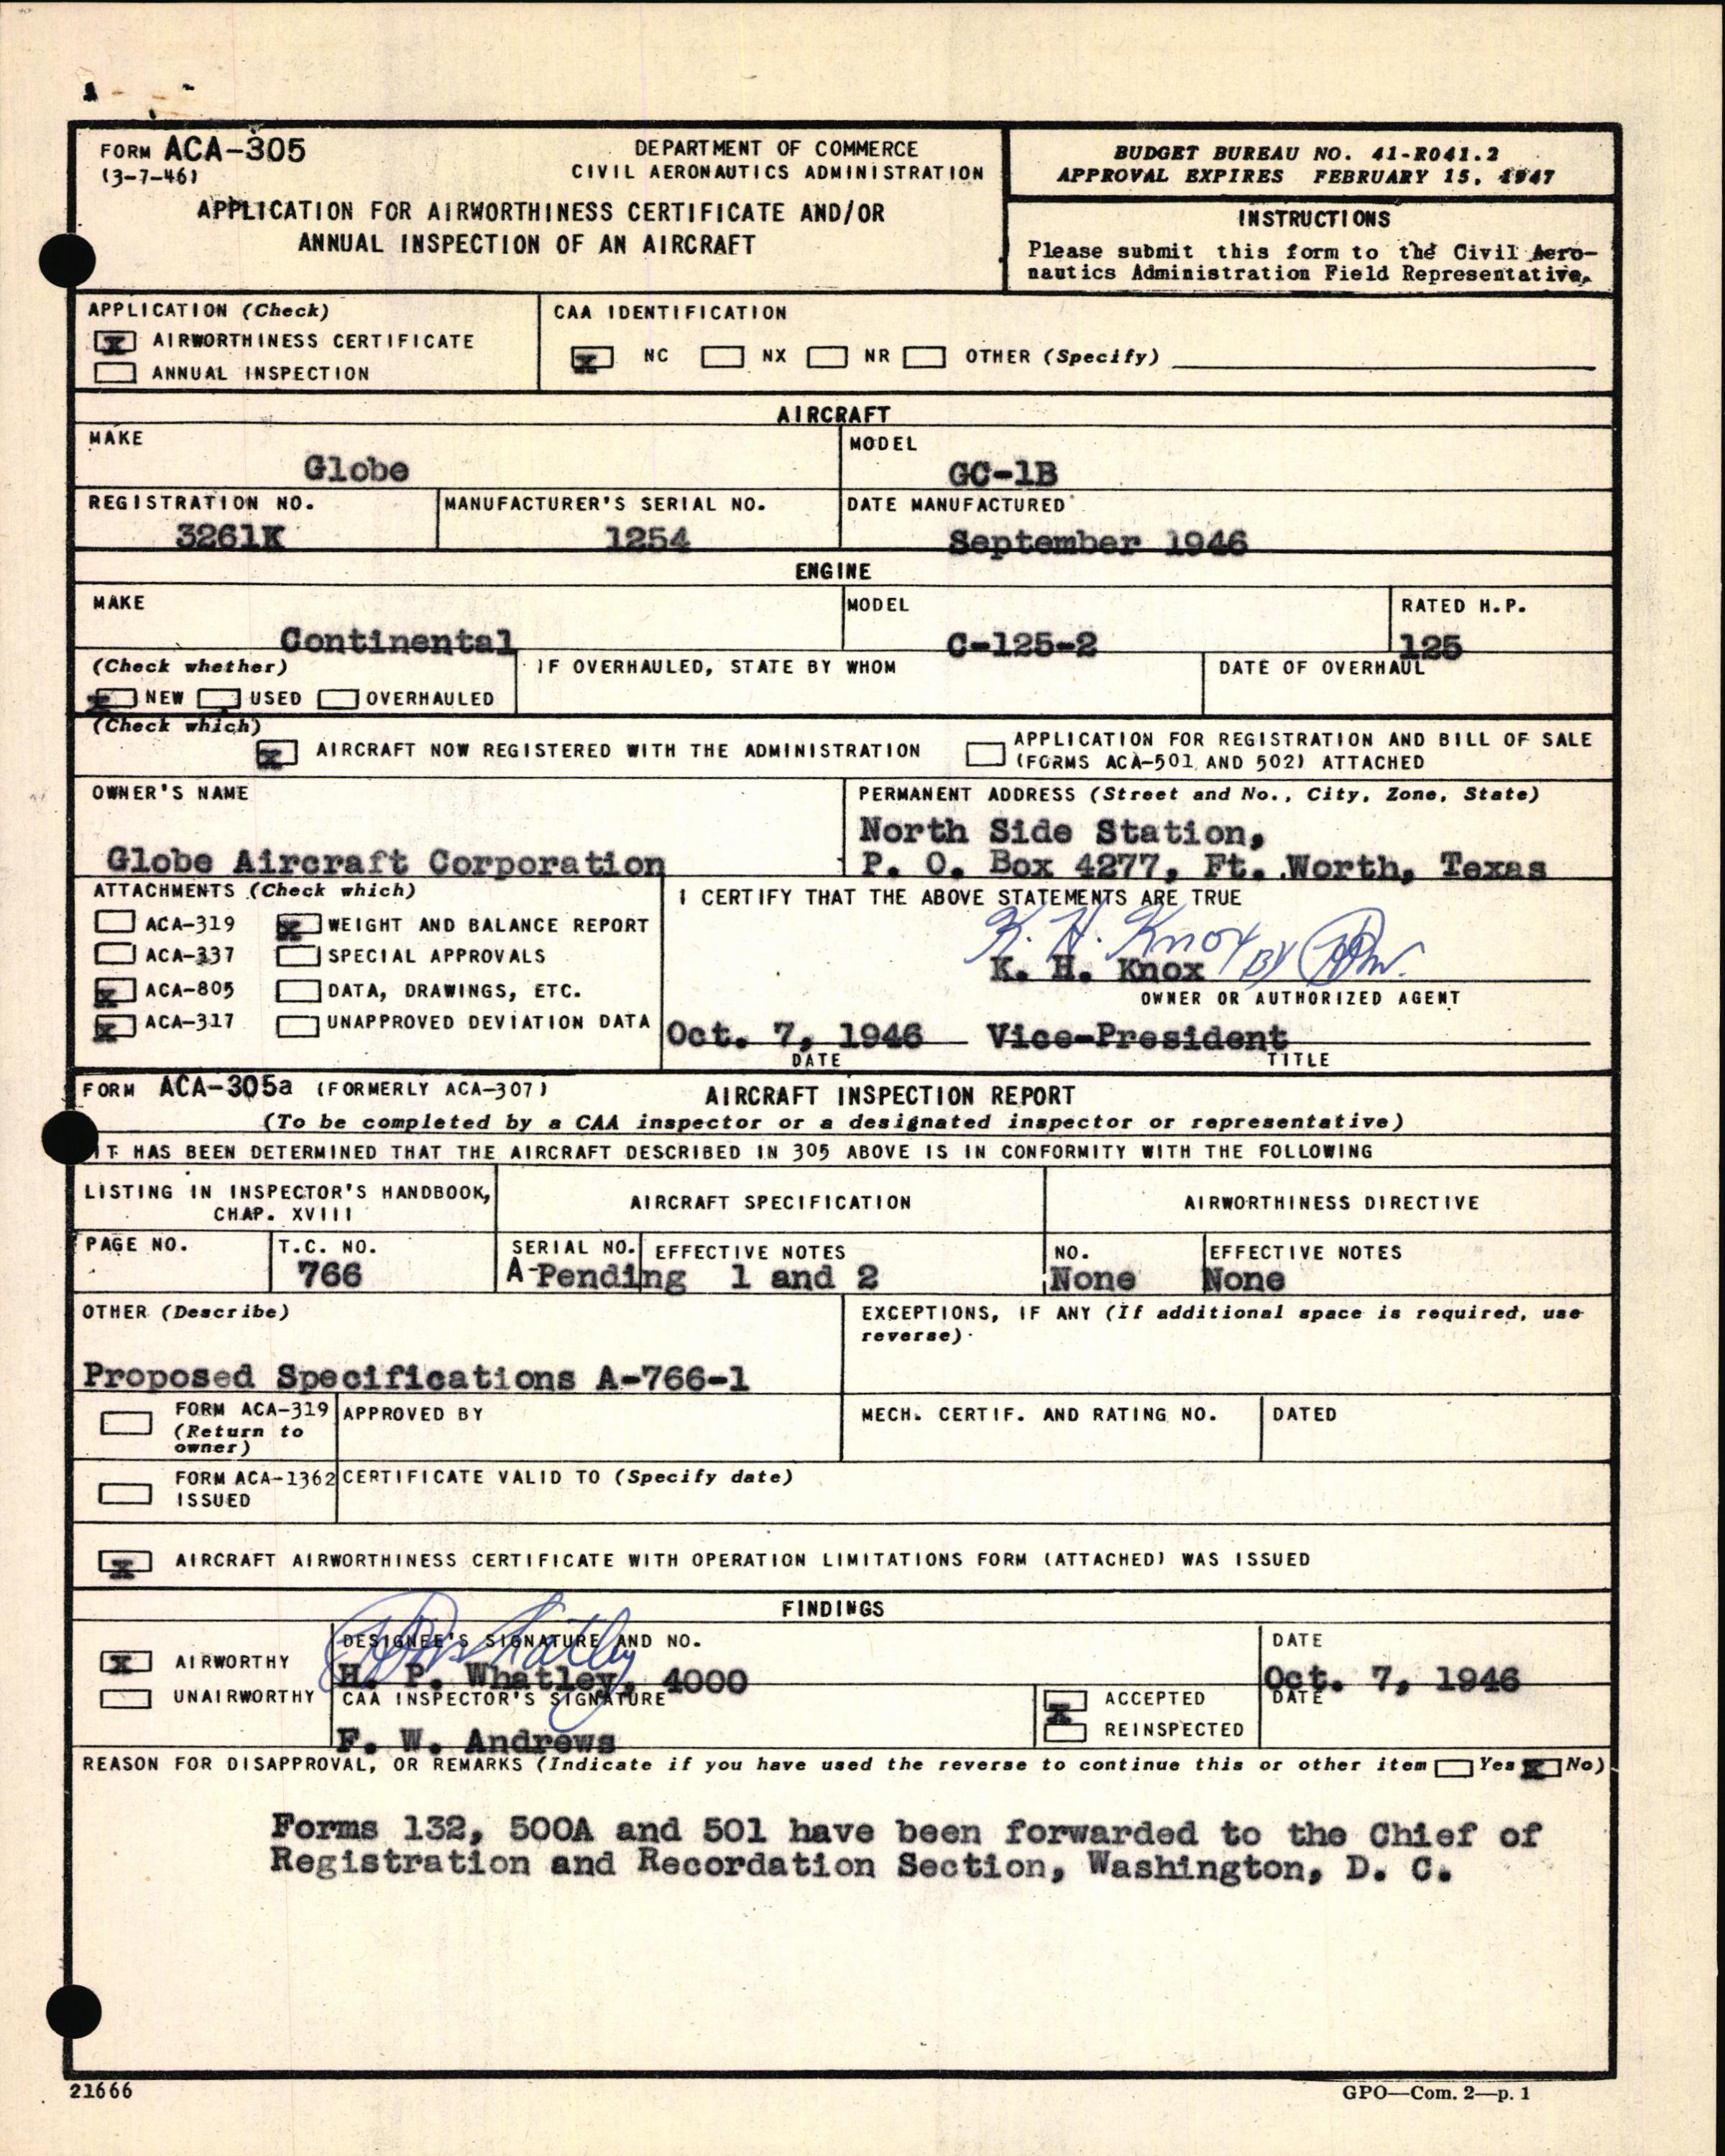 FORM ACA-305
(3-7-46)
DEPARTMENT OF COMMERCE
CIVIL AERONAUTICS ADMINISTRATION
APPLICATION FOR AIRWORTHINESS CERTIFICATE AND/OR
ANNUAL INSPECTION OF AN AIRCRAFT
BUDGET BUREAU NO. 41-R041.2
APPROVAL EXPIRES FEBRUARY 15, 1947
INSTRUCTIONS
Please submit this form to the Civil Aero-
nautics Administration Field Representative.
APPLICATION (Check)
X AIRWORTHINESS CERTIFICATE
ANNUAL INSPECTION
CAA IDENTIFICATION
X NC NX NR OTHER (Specify)
AIRCRAFT
MAKE
Globe
MODEL
GC-1B
REGISTRATION NO.
3261K
MANUFACTURER'S SERIAL NO.
1254
DATE MANUFACTURED
September 1946
ENGINE
MAKE
Continental
MODEL
C-125-2
RATED H.P.
125
(Check whether)
X NEW USED OVERHAULED
IF OVERHAULED, STATE BY WHOM
DATE OF OVERHAUL
(Check which)
X AIRCRAFT NOW REGISTERED WITH THE ADMINISTRATION
APPLICATION FOR REGISTRATION AND BILL OF SALE
(FORMS ACA-501 AND 502) ATTACHED
OWNER'S NAME
Globe Aircraft Corporation
PERMANENT ADDRESS (Street and No., City, Zone, State)
North Side Station,
P. O. Box 4277, Ft. Worth, Texas
ATTACHMENTS (Check which)
ACA-319 X WEIGHT AND BALANCE REPORT
ACA-337 SPECIAL APPROVALS
X ACA-805 DATA, DRAWINGS, ETC.
X ACA-317 UNAPPROVED DEVIATION DATA
I CERTIFY THAT THE ABOVE STATEMENTS ARE TRUE
K. H. Knox BY
K. H. Knox
OWNER OR AUTHORIZED AGENT
Oct. 7, 1946 Vice-President
DATE TITLE
FORM ACA-305a (FORMERLY ACA-307) AIRCRAFT INSPECTION REPORT
(To be completed by a CAA inspector or a designated inspector or representative)
IT HAS BEEN DETERMINED THAT THE AIRCRAFT DESCRIBED IN 305 ABOVE IS IN CONFORMITY WITH THE FOLLOWING
LISTING IN INSPECTOR'S HANDBOOK,
CHAP. XVIII
AIRCRAFT SPECIFICATION
AIRWORTHINESS DIRECTIVE
PAGE NO.
T.C. NO.
766
SERIAL NO. EFFECTIVE NOTES
A-Pending 1 and 2
NO.
None
EFFECTIVE NOTES
None
OTHER (Describe)
Proposed Specifications A-766-1
EXCEPTIONS, IF ANY (If additional space is required, use
reverse).
FORM ACA-319
(Return to
owner)
APPROVED BY
MECH. CERTIF. AND RATING NO.
DATED
FORM ACA-1362
ISSUED
CERTIFICATE VALID TO (Specify date)
X AIRCRAFT AIRWORTHINESS CERTIFICATE WITH OPERATION LIMITATIONS FORM (ATTACHED) WAS ISSUED
FINDINGS
X AIRWORTHY
UNAIRWORTHY
DESIGNEE'S SIGNATURE AND NO.
HP Whatley
H. P. Whatley, 4000
DATE
Oct. 7, 1946
CAA INSPECTOR'S SIGNATURE
F. W. Andrews
X ACCEPTED
REINSPECTED
DATE
REASON FOR DISAPPROVAL, OR REMARKS (Indicate if you have used the reverse to continue this or other item Yes X No)
Forms 132, 500A and 501 have been forwarded to the Chief of
Registration and Recordation Section, Washington, D. C.
21666
GPO—Com. 2—p. 1